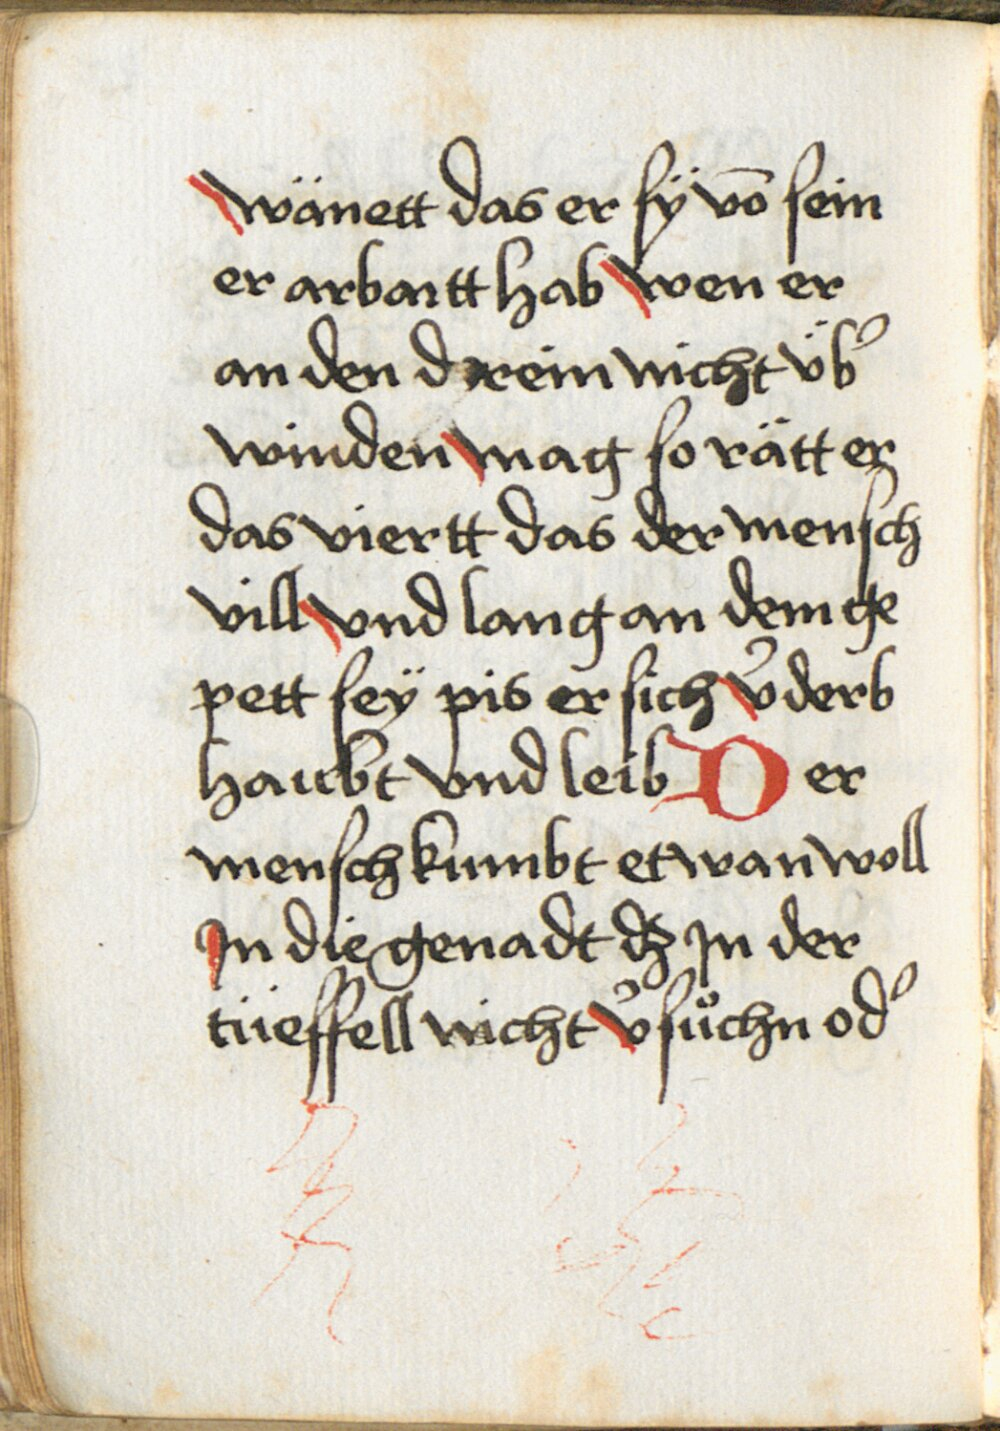 wänett das er sÿ vō sein
er arbaitt hab wen er
an den drein nicht übʼ
winden mag so rätt er
das viertt das der mensch
vill vnd lang an dem ge
pett seÿ pis er sich vʼderb
haubt vnd leib Der
mensch kumbt etwan woll
In die genadt dʒ In der
tüeffell nicht vʼsůchn odʼ